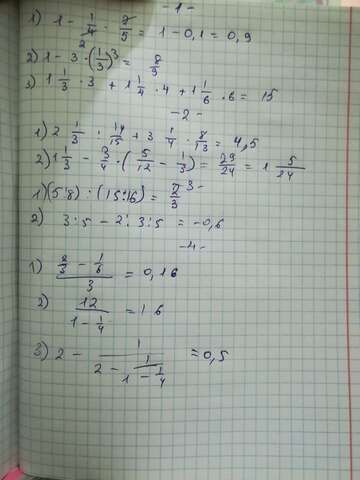 -1-
1) 1 - 1/4 · 2/5 = 1 - 0,1 = 0,9
2) 1 - 3 · (1/3)³ = 8/9
3) 1 1/3 · 3 + 1 1/4 · 4 + 1 1/6 · 6 = 15
-2-
1) 2 1/3 : 14/15 + 3 1/4 · 8/13 = 4,5
2) 1 1/3 - 3/4 · (5/12 - 1/3) = 29/24 = 1 5/24
-3-
1) (5:8) : (15:16) = 2/3
2) 3:5 - 2: 3:5 = -0,6
-4-
1) (2/3 - 1/6)/3 = 0,16
2) 12/(1 - 1/4) = 16
3) 2 - 1/(2 - 1/(1 - 1/4)) = 0,5